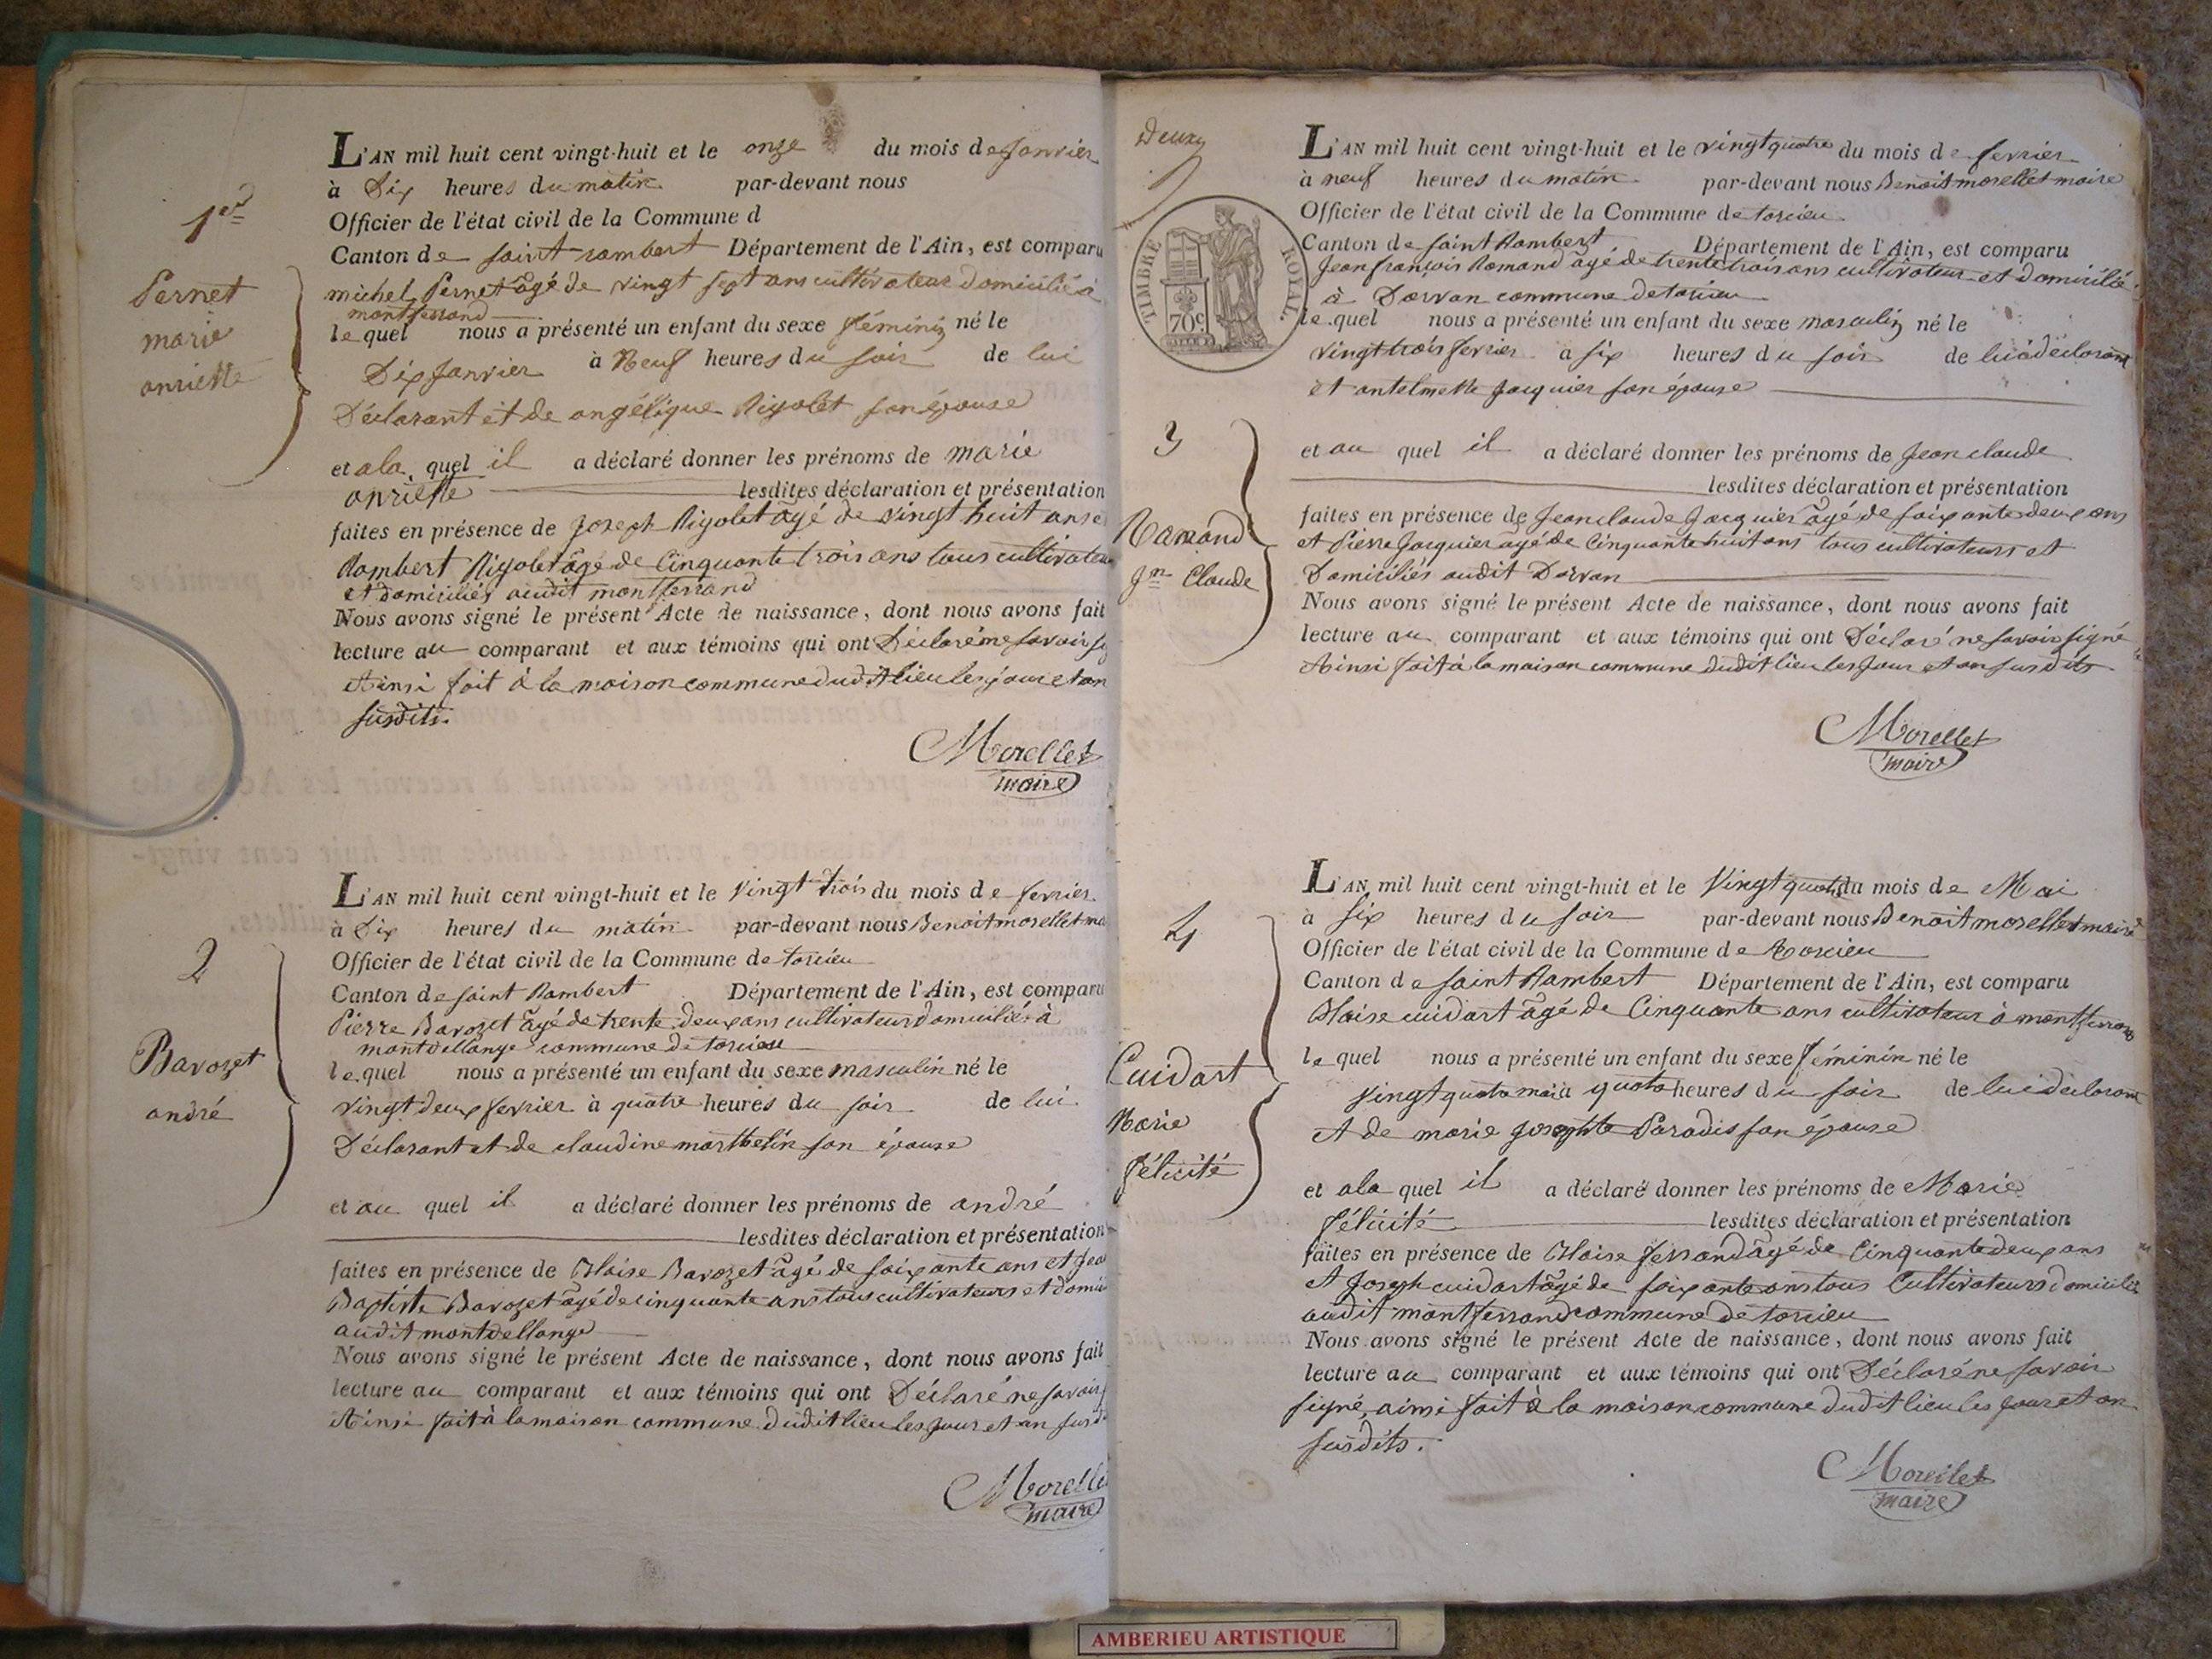 1er
Pernet
marie
anriette
L'AN mil huit cent vingt-huit et le onze du mois de Janvier
à Dix heures du matin par-devant nous
Officier de l'état civil de la Commune d
Canton de saint rambert Département de l'Ain, est comparu
michel Pernet âgé de vingt sept ans cultivateur domicilié à
montferrand
le quel nous a présenté un enfant du sexe féminin né le
Dix Janvier à Neuf heures du soir de lui
Déclarant et de angélique Rigolet son épouse
et a la quel il a déclaré donner les prénoms de marie
anriette lesdites déclaration et présentation
faites en présence de Joseph Rigolet âgé de vingt huit ans e
Rambert Rigolet âgé de Cinquante trois ans tous cultivateu
et domiciliés audit montferrand
Nous avons signé le présent Acte de naissance, dont nous avons fait
lecture au comparant et aux témoins qui ont Déclaré ne savoir si
Ainsi fait à la maison commune dudit lieu les jour et an
susdits.
Morellet
maire
2
Barozet
andré
L'AN mil huit cent vingt-huit et le vingt trois du mois de fevrier
à Dix heures du matin par-devant nous Benoit morellet ma
Officier de l'état civil de la Commune de torcieu
Canton de saint Rambert Département de l'Ain, est comparu
Pierre Barozet âgé de trente deux ans cultivateur domicilié à
montdellange commune de torcieu
le quel nous a présenté un enfant du sexe masculin né le
vingt deux fevrier à quatre heures du soir de lui
Déclarant et de claudine marthelin son épouse
et au quel il a déclaré donner les prénoms de andré
lesdites déclaration et présentation
faites en présence de Blaise Barozet âgé de soixante ans et Jea
Baptiste Barozet âgé de cinquante ans tous cultivateurs et domic
audit montdellange
Nous avons signé le présent Acte de naissance, dont nous avons fait
lecture au comparant et aux témoins qui ont Déclaré ne savoir
Ainsi fait à la maison commune dudit lieu les jour et an susd
Morelle
maire
Deux
TIMBRE ROYAL.
70c
3
Ramand
Jn Claude
L'AN mil huit cent vingt-huit et le vingt quatre du mois de fevrier
à neuf heures du matin par-devant nous Benoit morellet maire
Officier de l'état civil de la Commune de torcieu
Canton de saint Rambert Département de l'Ain, est comparu
Jean françois Ramand âgé de trente trois ans cultivateur et domicilié
à Dorvan commune de torcieu
le quel nous a présenté un enfant du sexe masculin né le
vingt trois fevrier à six heures du soir de lui déclarant
et antelmette Jacquier son épouse
et au quel il a déclaré donner les prénoms de Jean claude
lesdites déclaration et présentation
faites en présence de Jean claude Jacquier âgé de soixante deux ans
et Pierre Jacquier âgé de Cinquante huit ans tous cultivateurs et
Domiciliés audit Dorvan
Nous avons signé le présent Acte de naissance, dont nous avons fait
lecture au comparant et aux témoins qui ont Déclaré ne savoir signé
Ainsi fait à la maison commune dudit lieu les Jour et an susdits
Morellet
maire
4
Cuidart
Marie
félicité
L'AN mil huit cent vingt-huit et le Vingt quatre du mois de Mai
à six heures du soir par-devant nous Benoit morellet maire
Officier de l'état civil de la Commune de torcieu
Canton de saint Rambert Département de l'Ain, est comparu
Blaise cuidart âgé de Cinquante ans cultivateur à montferrand
le quel nous a présenté un enfant du sexe féminin né le
vingt quatre mai à quatre heures du soir de lui déclarant
et de marie Josephte Paradis son épouse
et a la quel il a déclaré donner les prénoms de Marie
félicité lesdites déclaration et présentation
faites en présence de Blaise ferrand âgé de Cinquante deux ans
et Joseph cuidart âgé de soixante ans tous Cultivateurs domiciliés
audit montferrand commune de torcieu
Nous avons signé le présent Acte de naissance, dont nous avons fait
lecture au comparant et aux témoins qui ont Déclaré ne savoir
signé, ainsi fait à la maison commune dudit lieu les jour et an
susdits.
Morellet
maire
AMBERIEU ARTISTIQUE